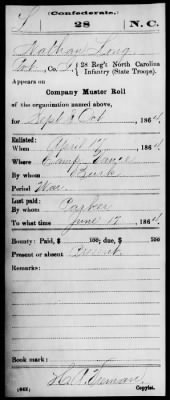 L
(Confederate.)
28 N.C.
Nathan Long
Co. 28 Reg't North Carolina
Infantry (State Troops).
Appears on
Company Muster Roll
of the organization named above,
for Sept & Oct, 1864.
Enlisted:
When April 17
Where Camp Vance
By whom
Period War
Last paid:
By whom Parker
To what time June 17, 1864.
Bounty: Paid, $ 100; due, $ 100
Present or absent
Remarks:
Book mark:
Copyist.